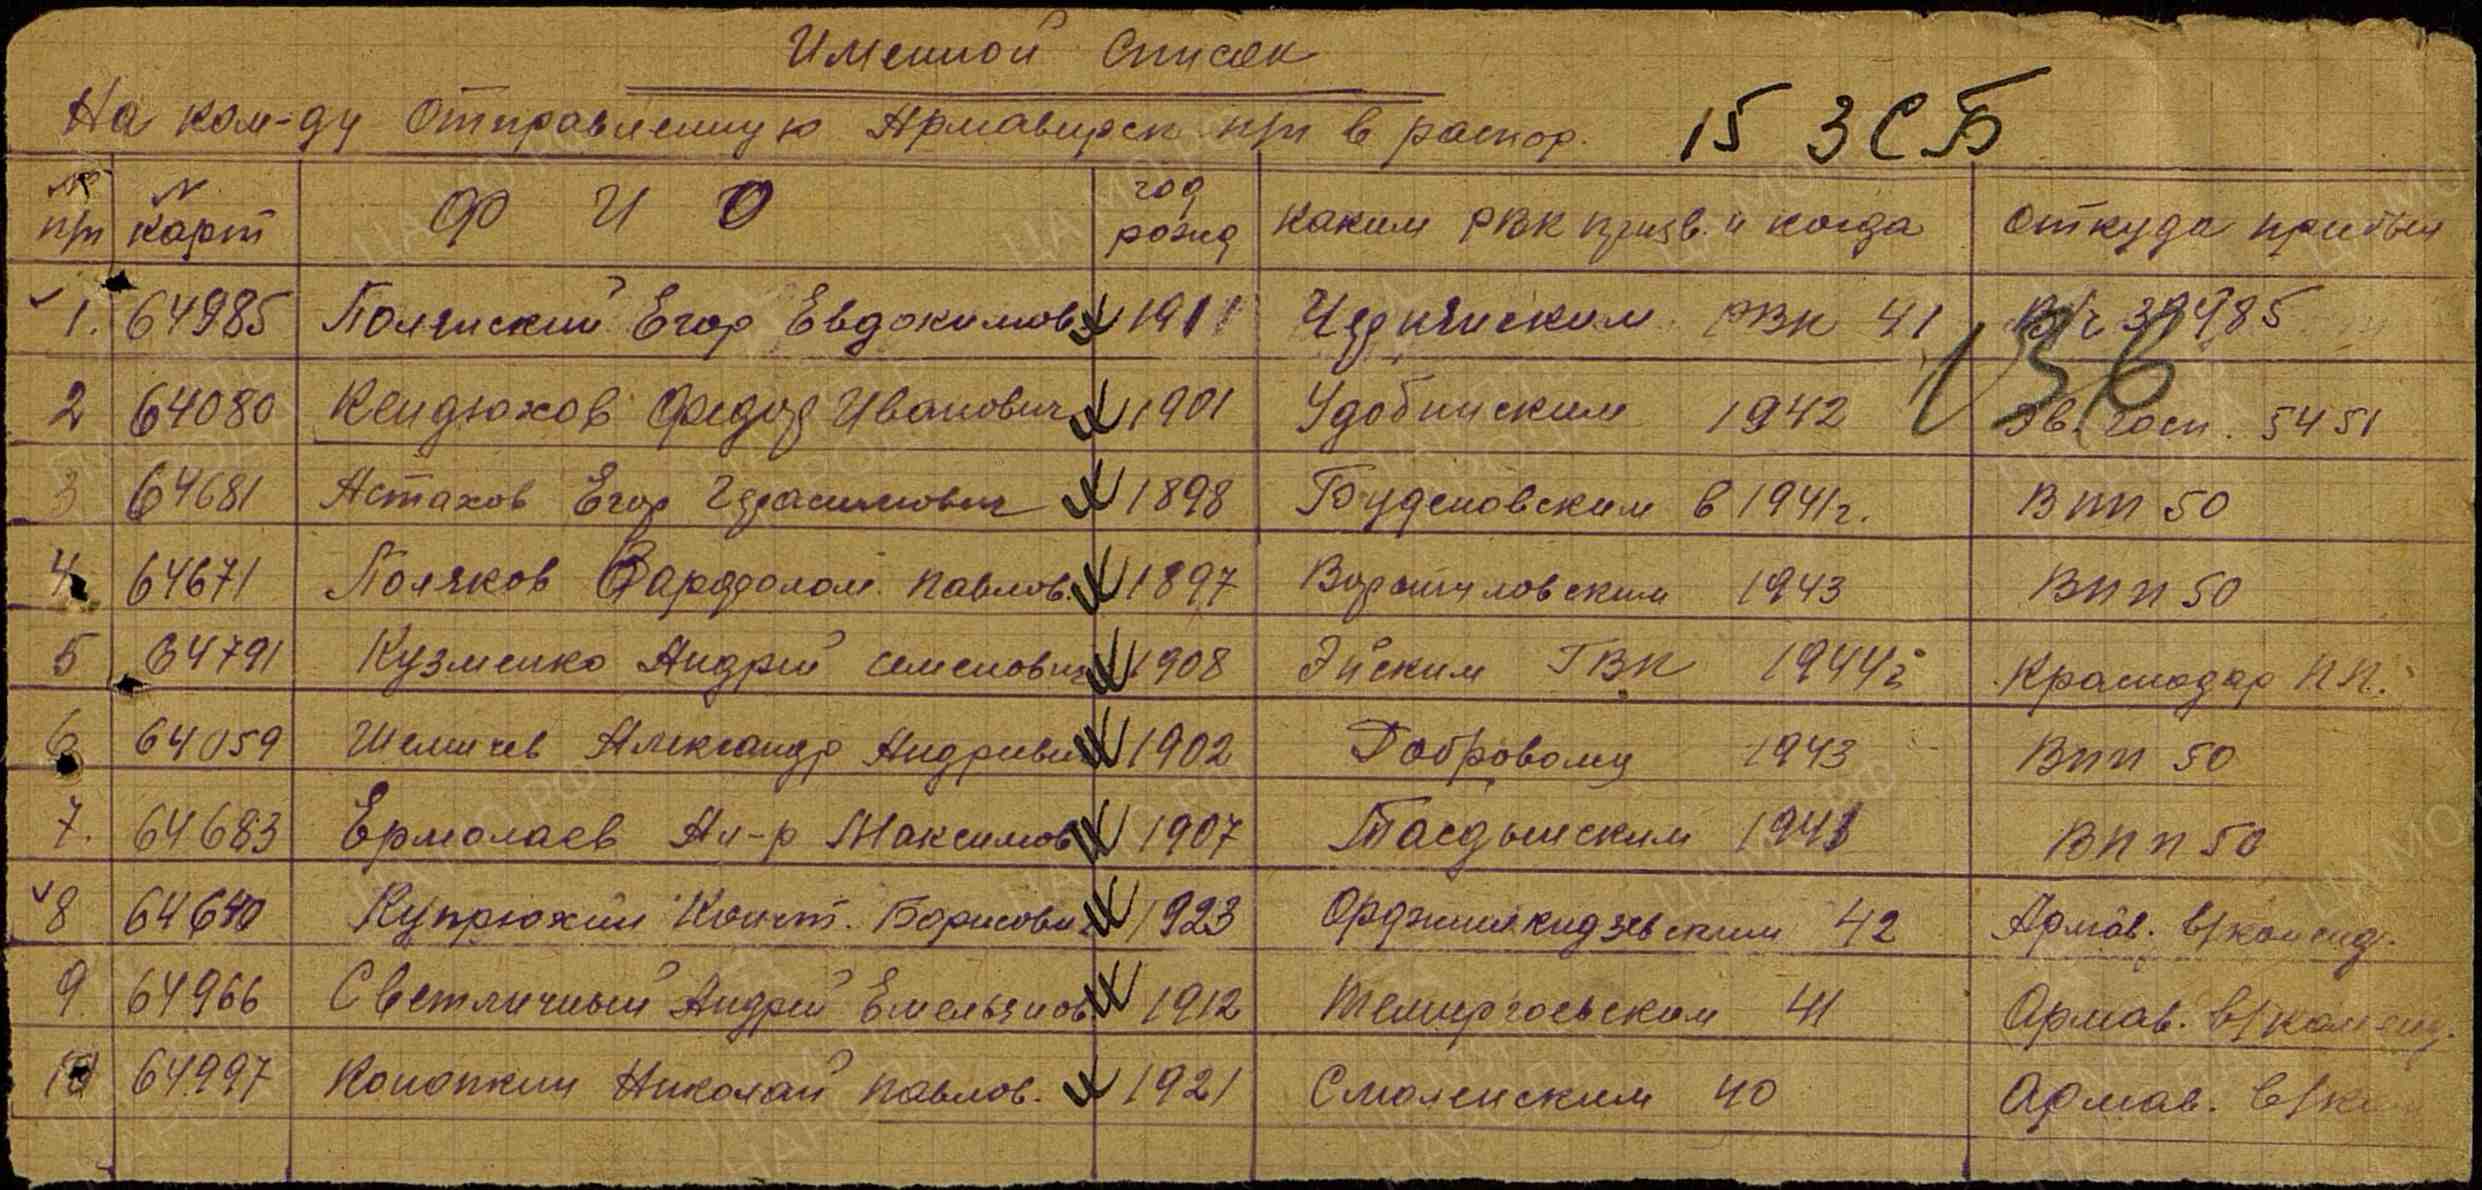 Именной Список
На ком-ду Отправленную Армавирск п/п в распор. 15 ЗСБ
№ п/п № карт Ф И О год рожд каким РВК призв. и когда Откуда прибыл
1. 64985 Полянский Егор Евдокимов 1911 РВК 41 В/ч 39985
136
2 64080 Кендюхов Федор Иванович 1901 Удобнинским 1942 Эв. госп. 5451
3 64681 Астахов Егор Герасимович 1898 Буденовским в 1941г. ВПП 50
4 64671 Поляков Варфолом. Павлов. 1897 Ворошиловским 1943 ВПП 50
5 64791 Кузменко Андрей Семенович 1908 Эйским ГВК 1944г ·Краснодар П.П.
6 64059 Александр Андреевич 1902 Добровому 1943 ВПП 50
7. 64683 Ермолаев Ал-р Максимов 1907 ВПП 50
8 64640 Купрюхин Конст. Борисович 1923 Орджоникидзевским 42 Армав. в/коменд.
9. 64966 Светличный Андрей Емельянов 1912 Темиргоевским 41 Армав. в/коменд.
10 64997 Конопкин Николай Павлов. 1921 Смоленским 40 Армав. в/ком